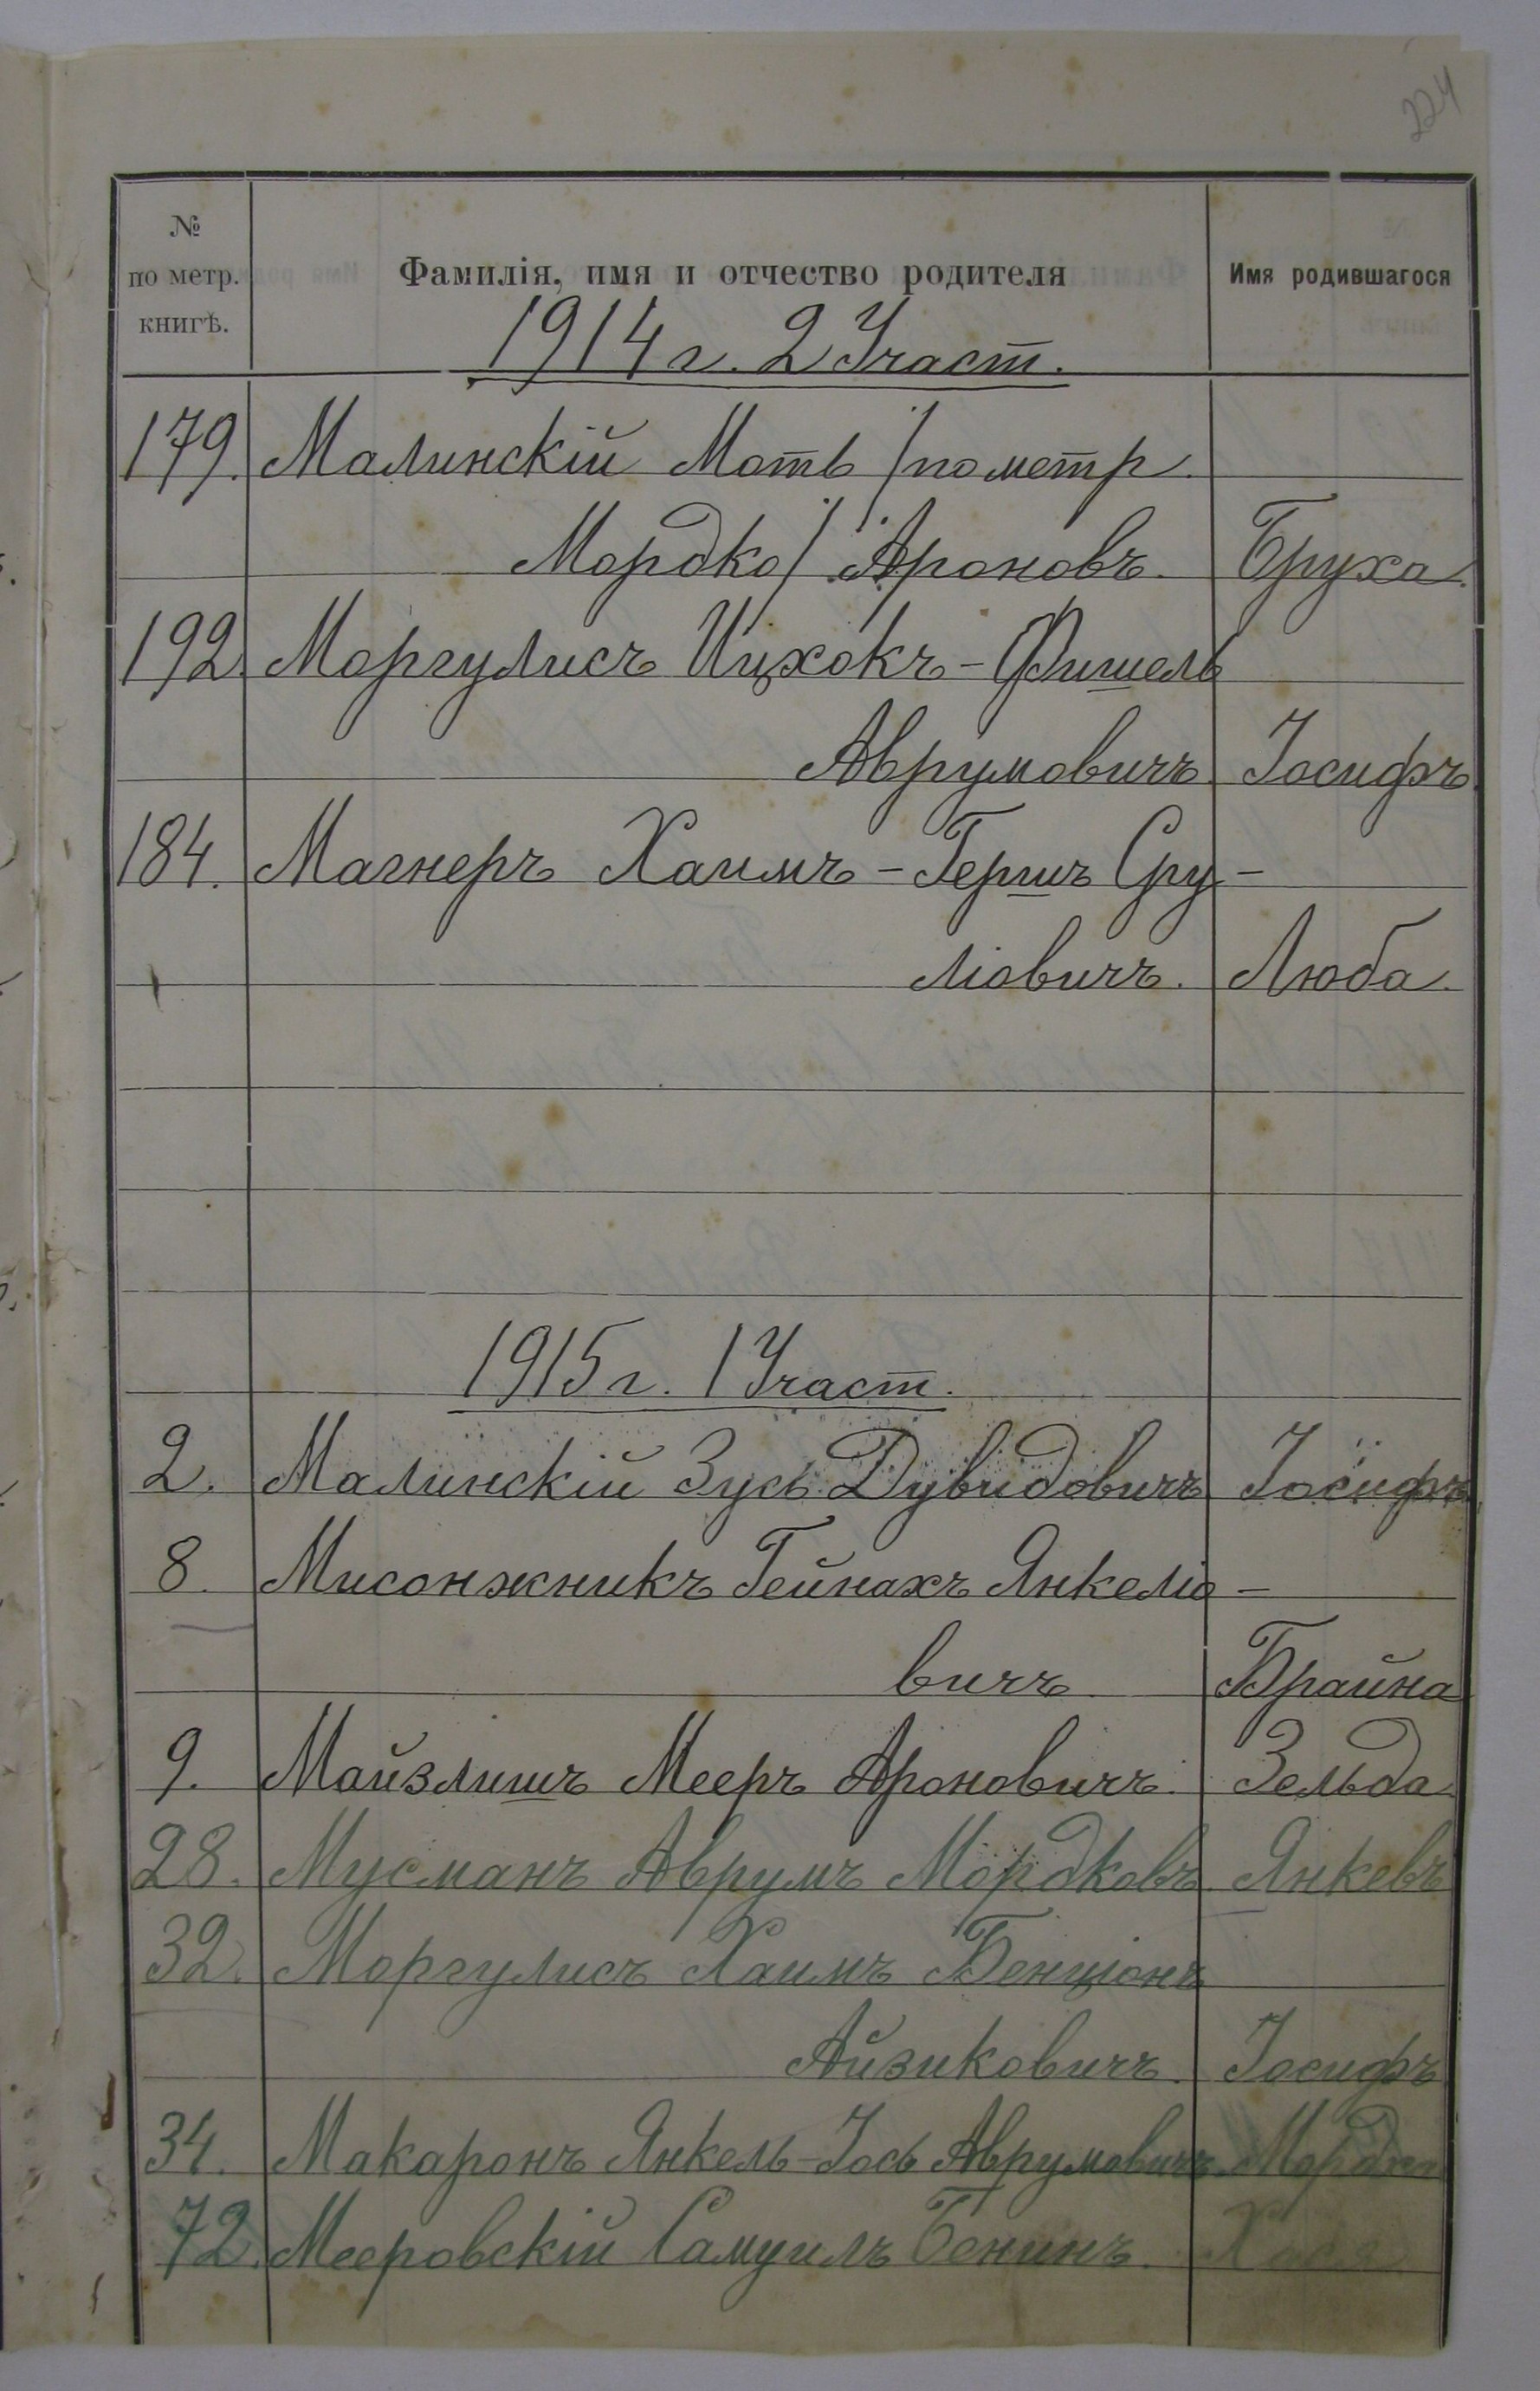 224
№ по метр. книгѣ. Фамилія, имя и отчество родителя Имя родившагося
1914 г. 2 Участ.
179. Малинскій Моть /по метр.
Мордко/ Ароновъ. Бруха.
192. Моргулисъ Ицхокъ-Фишель
Аврумовичъ. Іосифъ.
184. Магнеръ Хаимъ-Гершъ Сру-
ліовичъ. Люба.
1915 г. 1 Участ.
2. Малинскій Зусь Дувидовичъ Іосифъ.
8. Мисонжникъ Гейнахъ Янкеліо-
вичъ Брайна
9. Майзлишъ Мееръ Ароновичъ. Зельда.
28. Мусманъ Аврумъ Мордковъ. Янкевъ
32. Моргулисъ Хаимъ Бенціонъ
Айзиковичъ. Іосифъ
34. Макаронъ Янкель-Іось Аврумовичъ. Мордко
72. Мееровскій Самуилъ Бенинъ. Хася